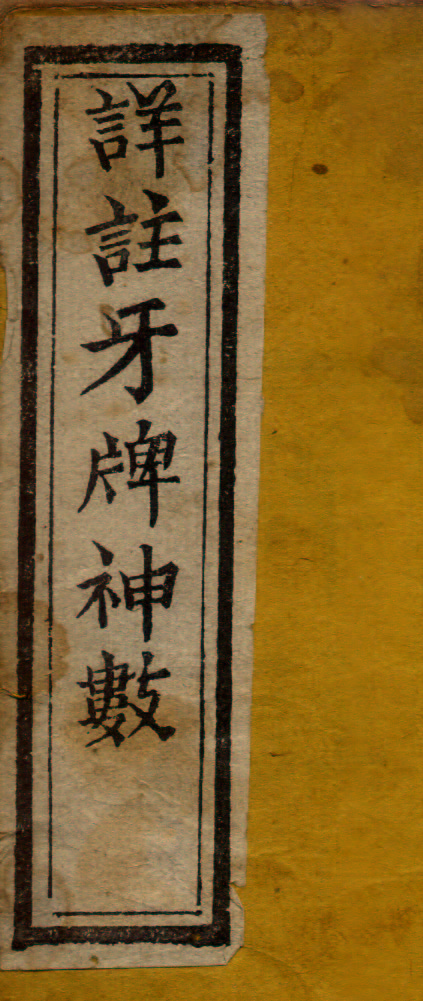 詳註牙牌神數